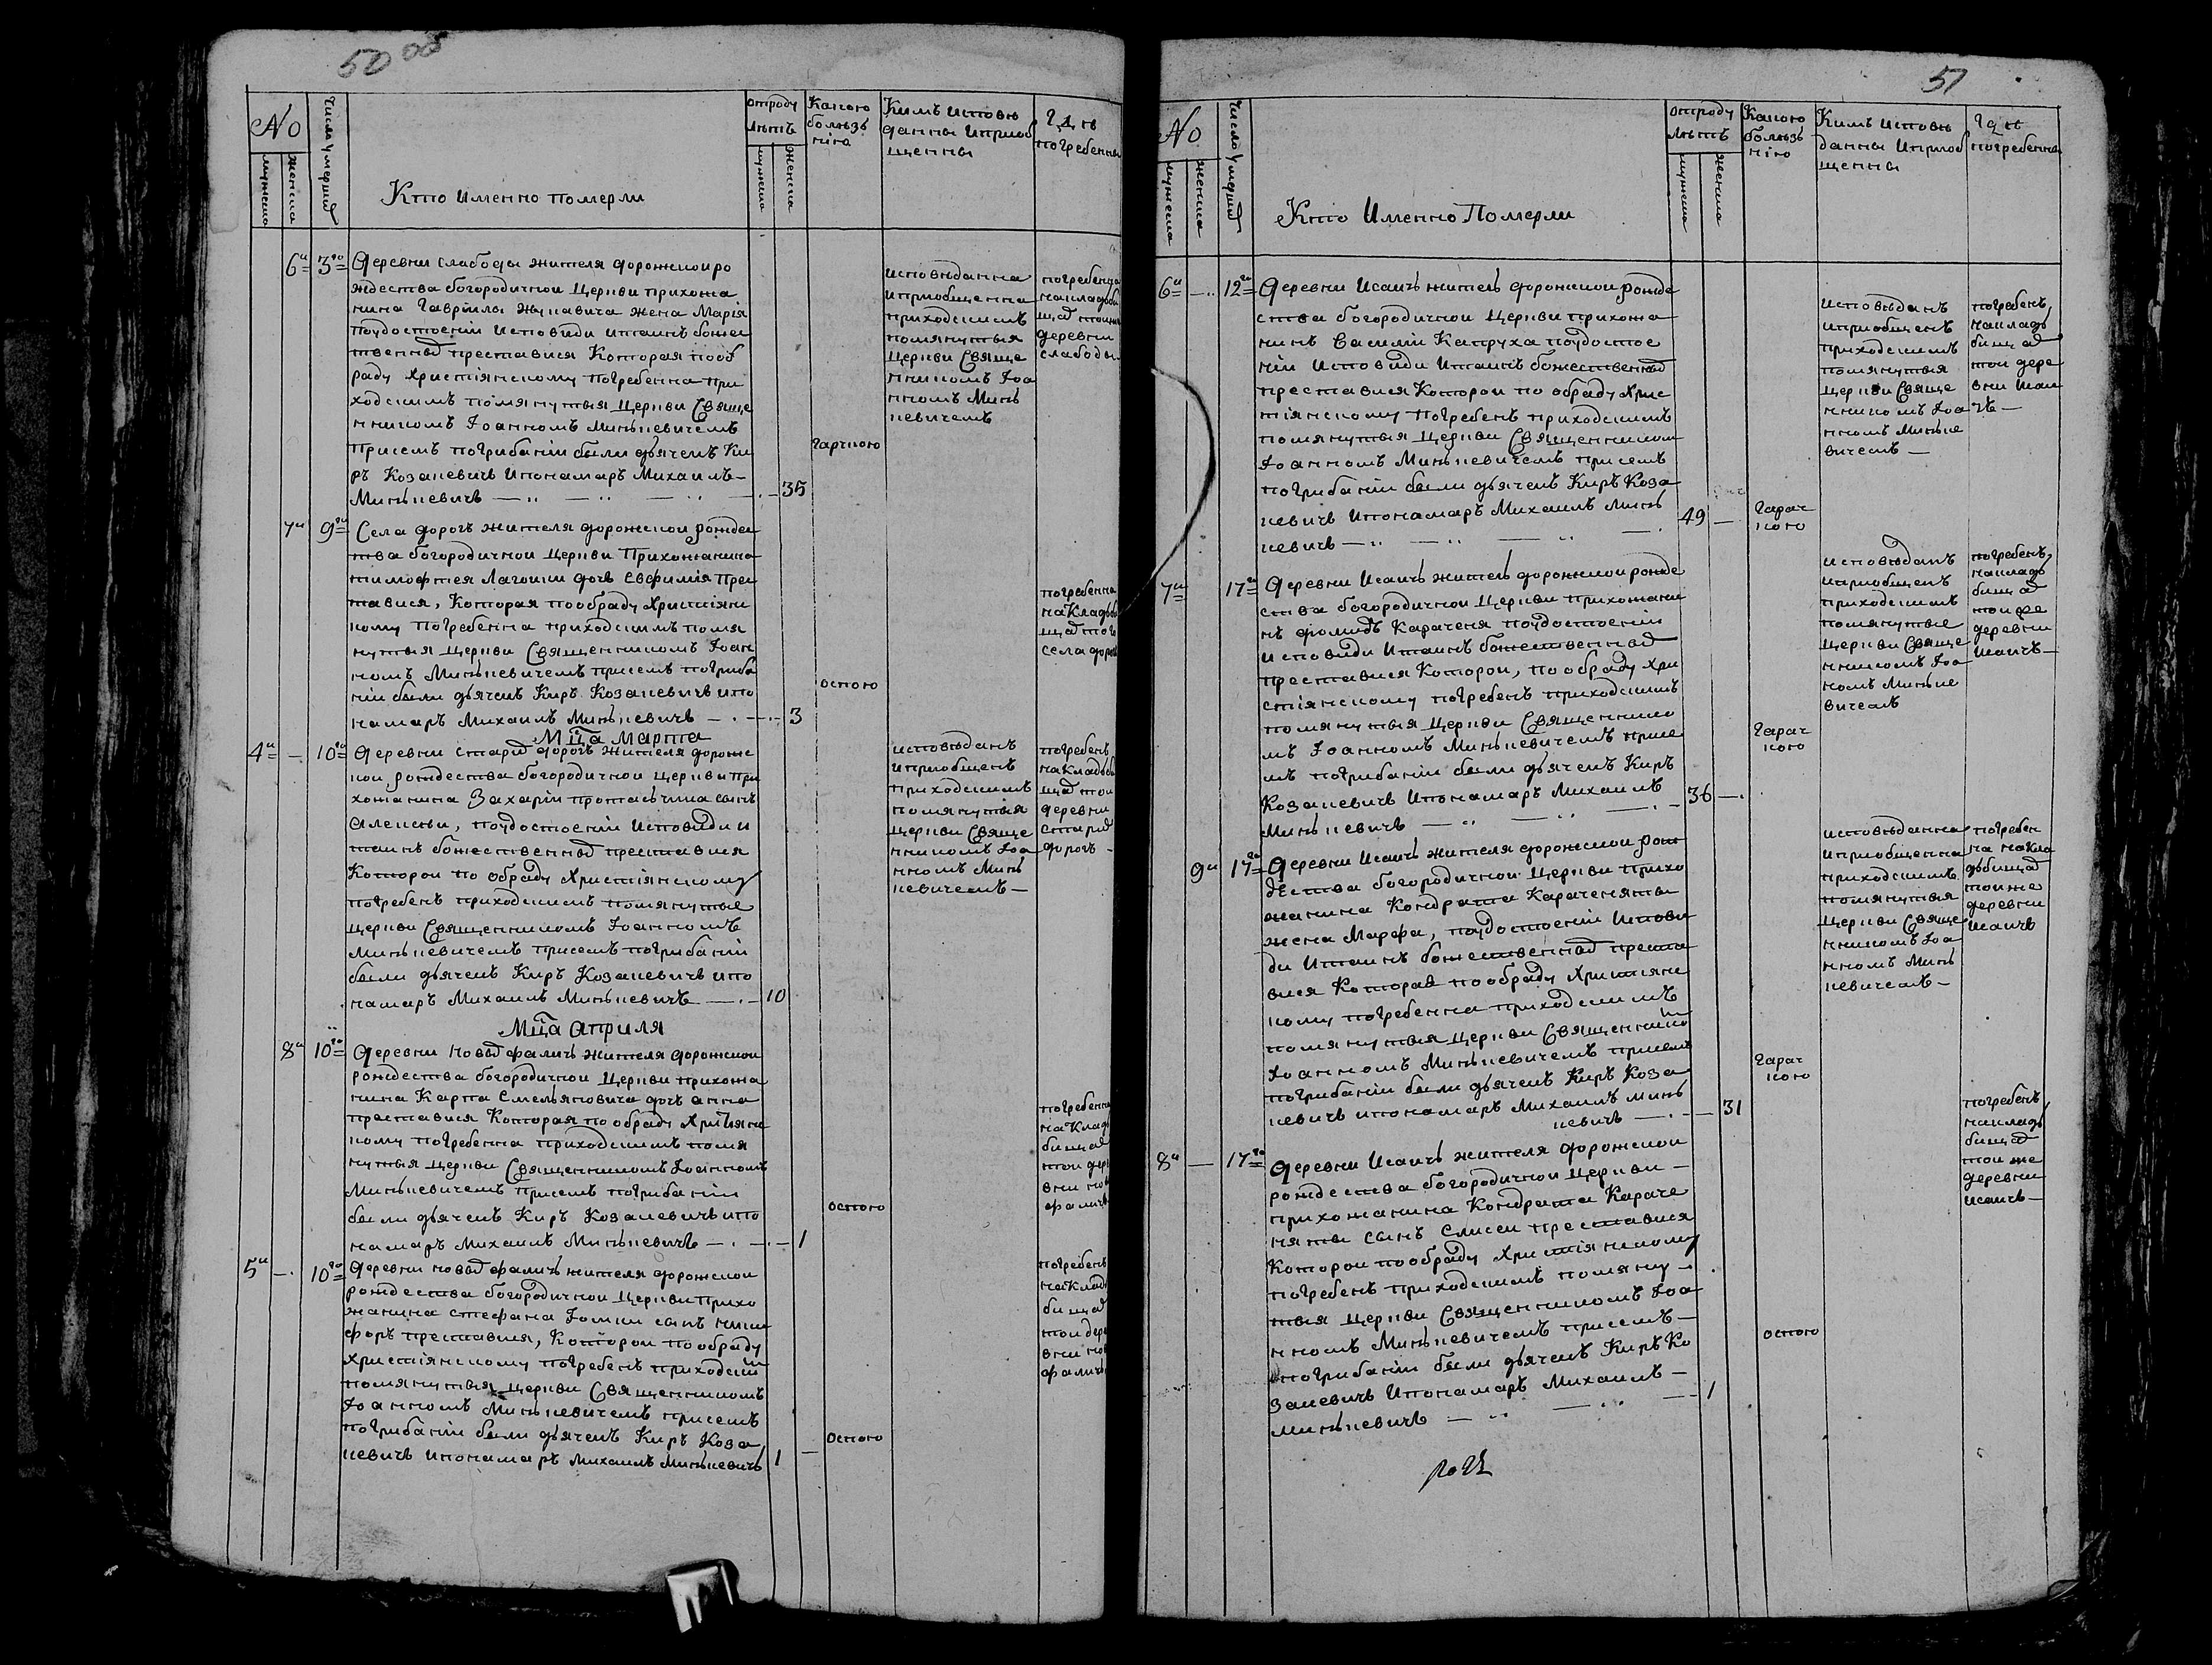 50 об
№
мужеска
женска
Число умерших
Кто Именно померли
отроду
лѣтъ
мужеска
женска
Какою
болѣзъ
нїю
Кимъ исповѣ
данны и приоб
щенны
Гдѣ
погребенны
6а 3го Деревни слабоды жителя дорожскои ро
ждества богородичнои Церкви прихожа
нина Гаврїилы Жукавича жена Марїя
поудостоенїи исповиди итаинъ божес
твенных преставися Которая пооб
раду христїянскому погребенна при
ходскимъ помянутыя Церкви Свяще
нникомъ Іоанномъ Минькевичемъ
присемъ погрибанїи были дьячекъ Ки
ръ Козакевичъ ипонамаръ Михаилъ –
Минькевичъ — „ — „ — „ — . – 35
гарчкою
исповѣданна
иприобщенна
приходскимъ
помянутыя
Церкви Свяще
нникомъ Іоа
нномъ Минь
кевичемъ
погребенна
накладби
щах тоижъ
деревни
слабоды
7а 9го Села дорогъ жителя дорожскои рождес
тва богородичнои Церкви Прихожанина
тимофтея Лагошки дочь Евфимїя прес
тавися, Которая пообраду христїянс
кому погребенна приходскимъ помя
нутыя Церкви Священникомъ Іоан
номъ Минькевичемъ присемъ погриба
нїи были дьячекъ Киръ Козакевичъ ипо
намаръ Михаилъ Минькевичъ — . — . – 3
оспою
погребенна
накладьби
щах тогъ
села дорогъ
Мца Марта
4а – 10го Деревни старых дорогъ жителя дорожс
кои рождества богородичнои Церкви при
хожанина Захарїи протасчика сынъ
Алексѣи, поудостоенїи исповиди и
таинъ божественных преставися
Которои по обраду Христїянскому
погребенъ приходскимъ помянутые
Церкви Священникомъ Іоанномъ
Минькевичемъ присемъ погрибанїи
были дьячекъ Киръ Козакевичъ ипо
намаръ Михаилъ Минькевичъ — . – 10
исповѣданъ
иприобщенъ
приходскимъ
помянутыя
Церкви Свяще
нникомъ Іоа
нномъ Минь
кевичемъ —
погребенъ
накладьби
щах тои
деревни
старых
дорогъ –
Мца Априля
8а 10го Деревни новых фаличь жителя дорожскои
рождества богородичнои Церкви прихожа
нина Карпа Емельяновича дочъ анна
преставися Которая по обраду Християнс
кому погребенна приходскимъ помя
нутыя Церкви Священникомъ Іоанномъ
Минькевичемъ присемъ погрибанїи
были дьячекъ Киръ Козакевичъ ипо
намаръ Михаилъ Минькевичъ — . — . – 1
оспою
погребенна
накладъ
бищах
тои дере
вни но
фаличъ
5а – . 10го Деревни новых фаличь жителя дорожскои
рождества богородичнои Церкви прихо
жанина стефана сынъ ники
форъ преставися, Которои пообраду
Христїянскому погребенъ приходским
помянутыя Церкви Священникомъ
Іоанномъ Минькевичемъ присемъ
погрибанїи были дьячекъ Киръ Коза
кевичъ ипонамаръ Михаилъ Минькевичъ 1 –
оспою
погребенъ
накладъ
бищах
тои дере
вни но
фаличъ
51
№
мужеска
женска
Число умерших
Кто Именно Померли
отроду
лѣтъ
мужеска
женска
Какою
болѣзъ
нїю
Кимъ исповѣ
данны иприоб
щенны
гдѣ
погребенны
6а – . 12го Деревни Исаичъ житель дорожскои рожде
ства богородичнои Церкви прихожа
нинъ Василїи Капруха поудостое
нїи исповиди итаинъ божественных
преставися Которои по обраду хрис
тїянскому погребенъ приходскимъ
помянутыя Церкви Священникомъ
Іоанномъ Минькевичемъ присемъ
погрибанїи были дьячекъ Киръ Коза
кевичъ ипонамаръ Михаилъ Минь
кевичъ — „ — „ — „ — . 49 –
Гарач
кою
исповѣданъ
иприобщенъ
приходскимъ
помянутыя
Церкви Свяще
нникомъ Іоа
нномъ Минке
вичемъ —
погребенъ
накладъ
бищах
тои дере
вни Исаи
чъ —
7а 17го Деревни Исаичъ житель дорожскои рожде
ства богородичнои Церкви прихожани
нъ Караченя поудостоенїи
исповиди итаинъ божественных
преставися Которои, пообраду хри
стїянскому погребенъ приходскимъ
помянутыя Церкви Священнико
мъ Іоанномъ Минькевичемъ присе
мъ погрибанїи были дьячекъ Киръ
Козакевичъ ипонамаръ Михаилъ
Минькевичъ — „ — „ — . – 36 – .
Гарач
кою
исповѣданъ
иприобщенъ
приходскимъ
помянутые
Церкви Свяще
нникомъ Іоа
номъ Минке
вичемъ
погребенъ
накладъ
бищах
тои же
деревни
Исаичъ —
9а 17го Деревни Исаичъ жителя дорожскои рож
дества богородичнои Церкви прихо
жанина Кондрата Караченяти
жена Марфа, поудостоенїи Испови
ди Итаинъ божественных преста
вися Которая пообраду Християнс
кому погребенна приходскимъ
помянутыя Церкви Священником
Іоанномъ Минькевичемъ присемъ
погрибанїи были дьячекъ Киръ Коза
кевичъ ипонамаръ Михаилъ Минь
кевичъ — . – – 31
Гарач
кою
исповѣданна
иприобщенна
приходскимъ
помянутыя
Церкви Свяще
нникомъ Іоа
нномъ Минь
кевичемъ –
погребен
на накла
дьбищах
тои же
деревни
Исаичъ
8а — 17го Деревни Исаичъ жителя дорожскои
рождества богородичнои Церкви –
прихожанина Кондрата Караче
няти сынъ Елисеи преставися
Которои пообраду Христїянскому
погребенъ приходскимъ помяну –
тыя Церкви Священникомъ Іоа
нномъ Минькевичемъ присемъ –
погрибанїи были дьячекъ Киръ Ко
закевичъ Ипонамаръ Михаилъ –
Минькевичъ — „ — . . — – 1
оспою
погребенъ
накладъ
бищах
тои же
деревни
исаичъ —